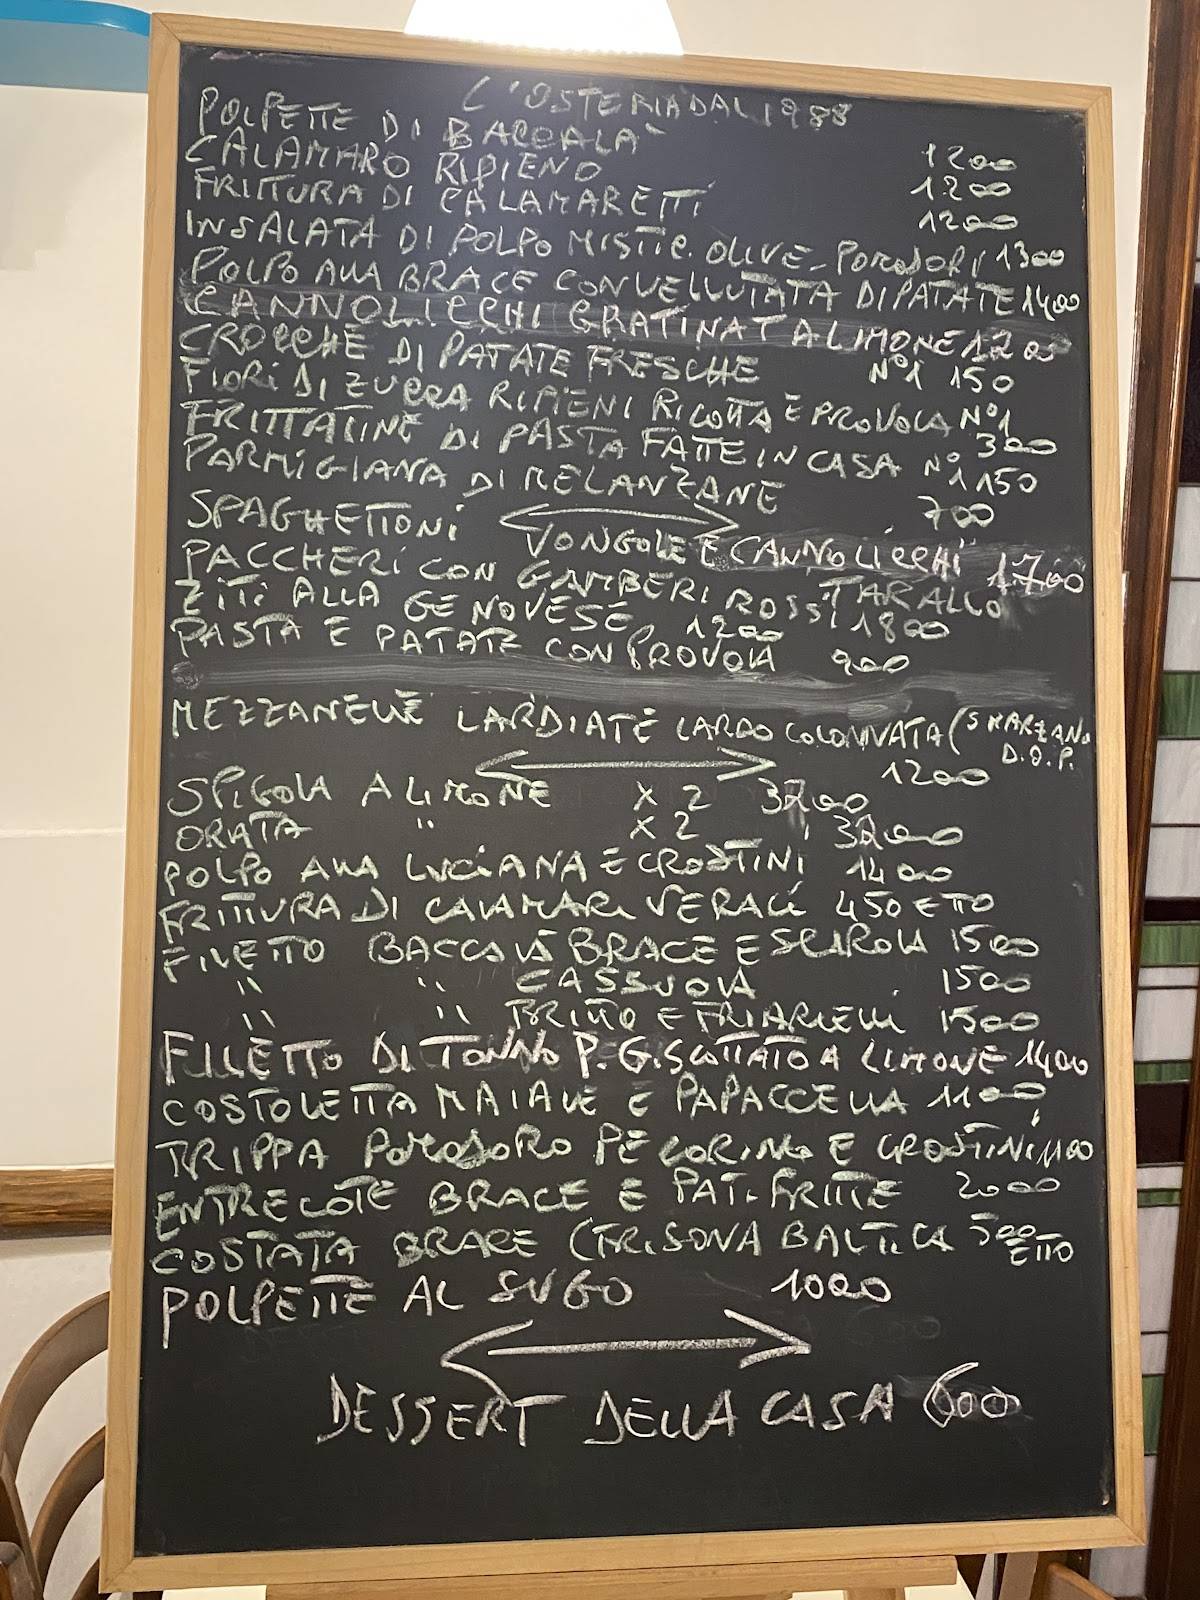 L'OSTERIA DAL 1988
POLPETTE DI BACCALA' 1200
CALAMARO RIPIENO 1200
FRITTURA DI CALAMARETTI 1200
INSALATA DI POLPO MISTIC. OLIVE - POMODORI 1300
POLPO ALLA BRACE CON VELLUTATA DI PATATE 1400
CANNOLICCHI GRATINAT A LIMONE 1200
CROCCHE DI PATATE FRESCHE N°1 150
FIORI DI ZUCCA RIPIENI RICOTTA E PROVOLA N°1 300
FRITTATINE DI PASTA FATTE IN CASA N°1 150
PARMIGIANA DI MELANZANE 700
SPAGHETTONI VONGOLE E CANNOLICCHI 1700
PACCHERI CON GAMBERI ROSSI TARALLO 1800
ZITI ALLA GENOVESE 1200
PASTA E PATATE CON PROVOLA 900
MEZZANELLE LARDIATE LARDO COLONNATA (S MARZANO D.O.P. 1200
SPIGOLA A LIMONE X 2 3200
ORATA " X 2 3200
POLPO ALLA LUCIANA E CROSTINI 1400
FRITTURA DI CALAMARI VERACI 450 ETTO
FILETTO BACCALÀ BRACE E SCAROLA 1500
" " CASSUOLA 1500
" " FRITTO E FRIARIELLI 1500
FILETTO DI TONNO P.G. SCOTTATO A LIMONE 1400
COSTOLETTA MAIALE E PAPACCELLA 1100
TRIPPA POMODORO PECORINO E CROSTINI 1100
ENTRECOTE BRACE E PAT. FRITTE 2000
COSTATA BRACE (FRISONA BALTICA 500 ETTO
POLPETTE AL SUGO 1000
DESSERT DELLA CASA 600